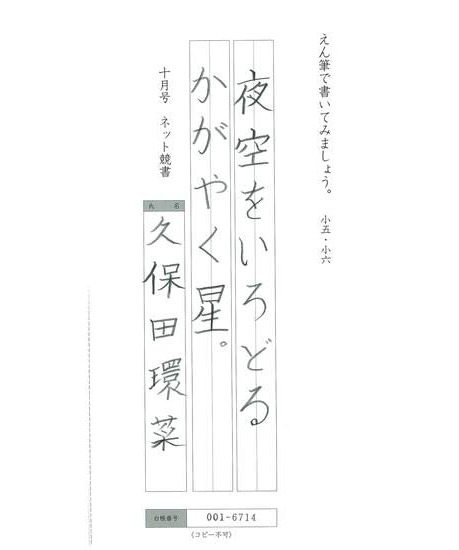 えん筆で書いてみましょう。 小五・小六
夜空をいろどる
かがやく星。
十月号 ネット競書
氏名
久保田環菜
台帳番号 001-6714
(コピー不可)